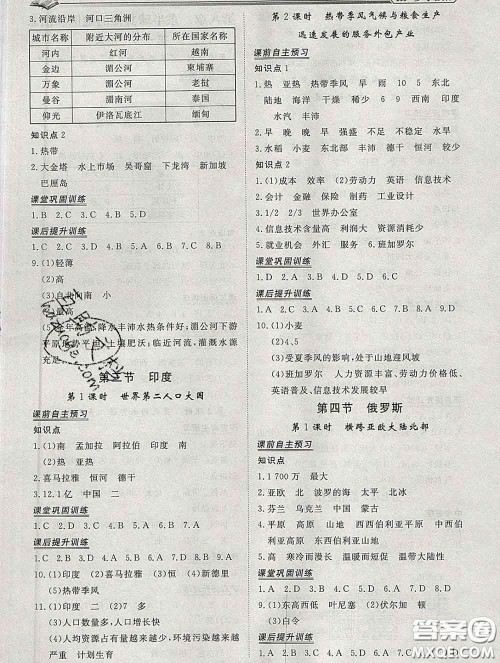 3.河流沿岸 河口三角洲
城市名称 附近大河的分布 所在国家名称
河内 红河 越南
金边 湄公河 柬埔寨
万象 湄公河 老挝
曼谷 湄南河 泰国
仰光 伊洛瓦底江 缅甸
知识点2
1.热带
2.大金塔 水上市场 吴哥窟 下龙湾 新加坡
巴厘岛
课堂巩固训练
1.B 2.C 3.C 4.D
课后提升训练
1.C 2.D 3.D 4.D 5.A 6.C 7.C 8.B
9.(1)轻薄
(2)高
(3)自北向南 小
量高
降水丰沛水热条件好;湄公河下游
土壤肥沃;临近河流,灌溉水源
充足.
第三节 印度
第1课时 世界第二人口大国
课前自主预习
知识点
1.(1)南 孟加拉 阿拉伯 印度
(2)热 亚热
2.喜马拉雅 恒河 德干
3.12.1亿 中国 二
课堂巩固训练
1.C 2.B 3.A 4.C 5.D 6.A 7.D
课后提升训练
1.C 2.B 3.C 4.B 5.D 6.A 7.A 8.C 9.D
10.(1)印度 (2)喜马拉雅 (3)恒 (4)新德里
(5)热带季风
11.(1)印度 二 (2)7 多
(3)人口数量多 人口增长速度快
(4)人口数量增多 环境污染越来越
严重 计划生育
第2课时 热带季风气候与粮食生产
迅速发展的服务外包产业
课前自主预习
知识点1
1.热 亚热 热带季风 旱 雨 10 5 东北
陆地 海洋 干燥 稀少 6 9 西南 印度
水汽 丰沛
2.早 晚 晚 早 强盛 不足 强盛 丰沛
大 早 晚 早 不足 大
3.水稻 小麦 东北 半岛 德干 西北
知识点2
1.(1)成本 效率 (2)劳动力 英语 信息技术
2.会计 金融 保险 制药 工业设计
3.1/2 2/3 世界办公室
4.信息技术含量高 利润大 资源消耗少
5.就业机会 外汇 服务 6.班加罗尔
课堂巩固训练
1.A 2.D 3.A 4.C 5.D 6.A 7.D
课后提升训练
1.C 2.A 3.C 4.A 5.D 6.D 7.B 8.B 9.D
10.(1)小麦
(2)C
(3)受夏季风的影响,处于山地迎风坡
(4)班加罗尔 人口众多,劳动力价格低、
英语普及、信息技术发展较早
第四节 俄罗斯
第1课时 横跨亚欧大陆北部
课前自主预习
知识点
1.1 700万 最大
2.亚欧 北 波罗的海 太平 北冰
3.芬兰 乌克兰 蒙古 中国
4.平原 高原 山地 西西伯利亚平原 中西伯
利亚高原 东西伯利亚山地
5.高 寒冷而漫长 温和而短促 温带大陆性
课堂巩固训练
1.C 2.B 3.D 4.A 5.C 6.A 7.C 8.D
9.(1)东高西低 叶尼塞 (2)伏尔加 D
(3)白令
课后提升训练
1.A 2.D 3.C 4.D 5.A 6.C 7.D 8.D
答案圈
MXQE.COM